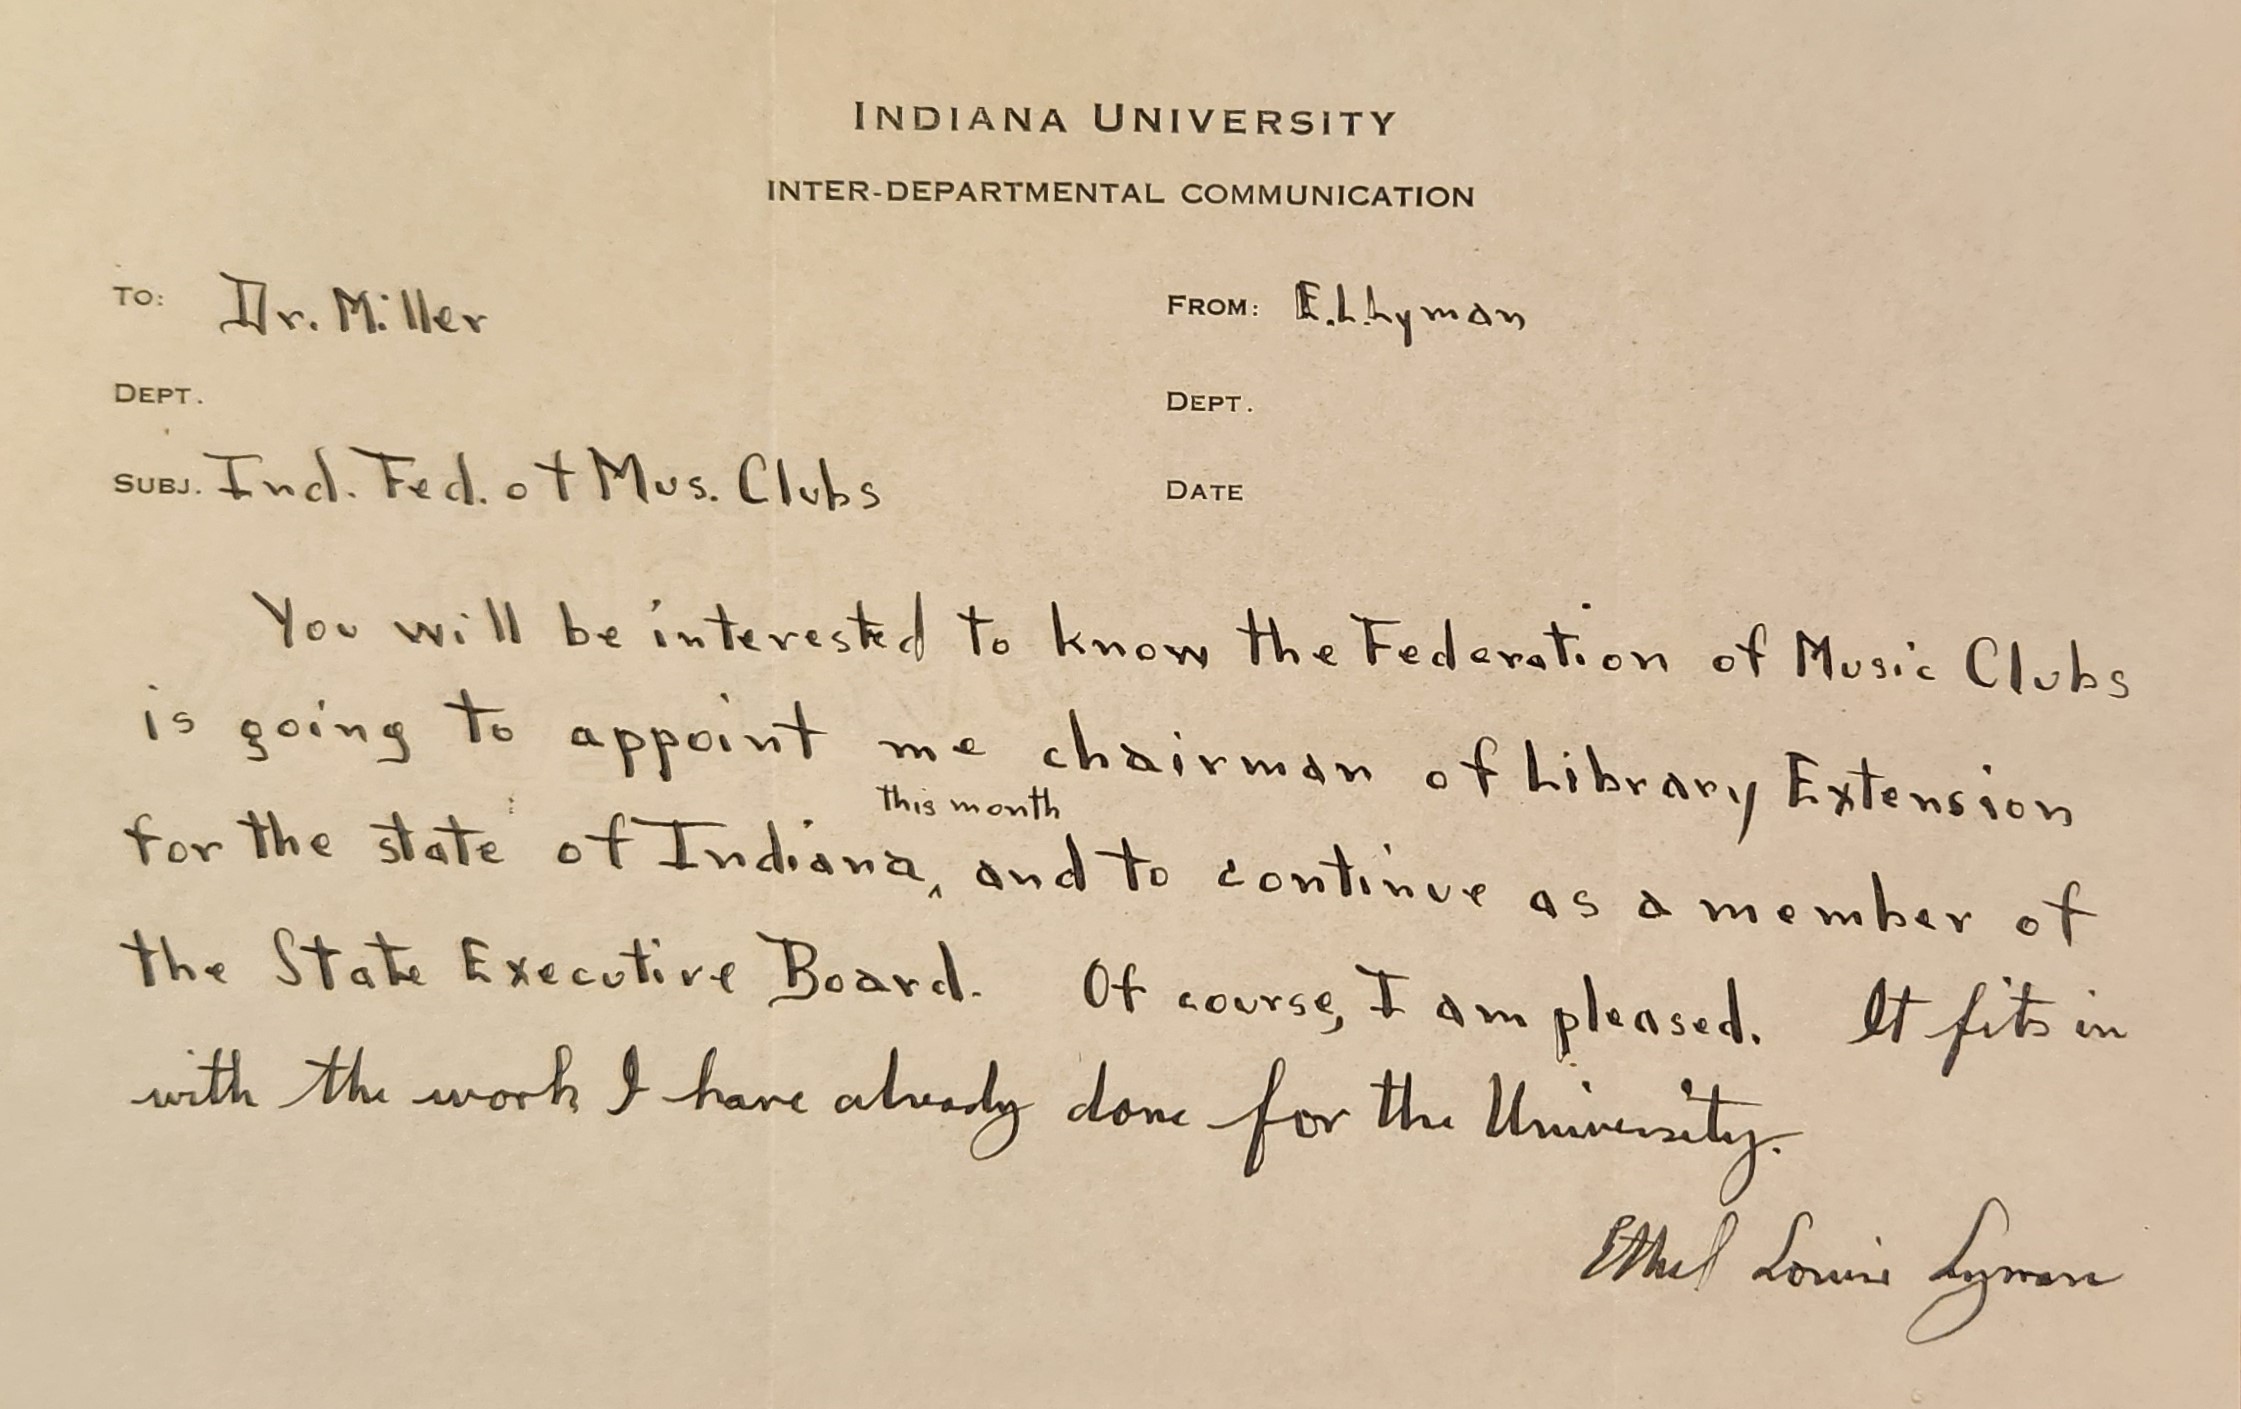 INDIANA UNIVERSITY
INTER-DEPARTMENTAL COMMUNICATION
TO: Dr. Miller
FROM: E.L.Lyman
DEPT.
DEPT.
SUBJ. Ind. Fed. of Mus. Clubs
DATE
You will be interested to know the Federation of Music Clubs
is going to appoint me chairman of Library Extension
this month
for the state of Indiana, and to continue as a member of
the State Executive Board. Of course, I am pleased. It fits in
with the work I have already done for the University.
Ethel Louise Lyman